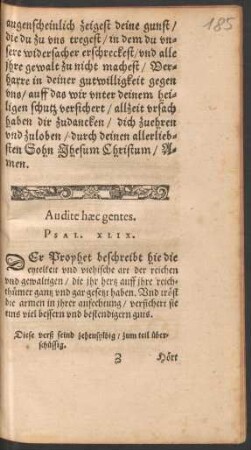 185
augenscheinlich zeigest deine gunst /
die du zu vns tregest / in dem du vn-
sere widersacher erschreckest / vnd alle
ihre gewalt zu nicht machest / Ver-
harre in deiner gutwilligkeit gegen
vns / auff das wir vnter deinem hei-
ligen schutz versichert / allzeit vrsach
haben dir zudancken / dich zuehren
vnd zuloben / durch deinen allerlieb-
sten Sohn Jhesum Christum / A-
men.
Audite hæc gentes.
PSAL. XLIX.
DEr Prophet beschreibt hie die
eytelkeit vnd viehische art der reichen
vnd gewaltigen / die jhr hertz auff ihre reich-
thümer gantz vnd gar gesetzt haben. Vnd tröst
die armen in jhrer anfechtung / versichert sie
eins viel bessern vnd bestendigern guts.
Diese verß seind zehensylbig / zum teil über-
schüssig.
Z
Hört